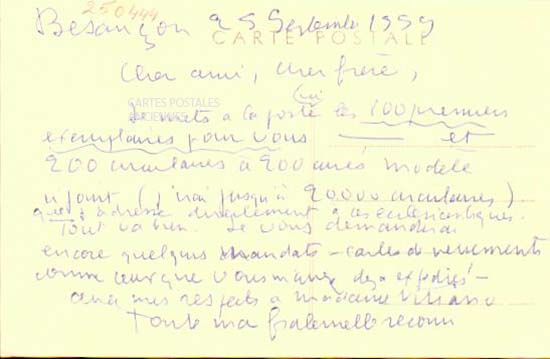 250444
Besançon 25 Septembre 1959
CARTE POSTALE
Cher ami, cher frère,
CARTES POSTALES
ANCIENNES
Je mets à la poste les 100 premiers
exemplaires pour vous — et
200 circulaires à 200 curés modèle
ci joint (j'irai jusqu'à 20000 circulaires)
que j'adresse directement à ces ecclésiastiques.
Tout va bien. Je vous demanderai
encore quelques mandats-cartes de versements
comme ceux que vous m'avez déjà expédiés -
avec mes respects à madame
Toute ma fraternelle reconn